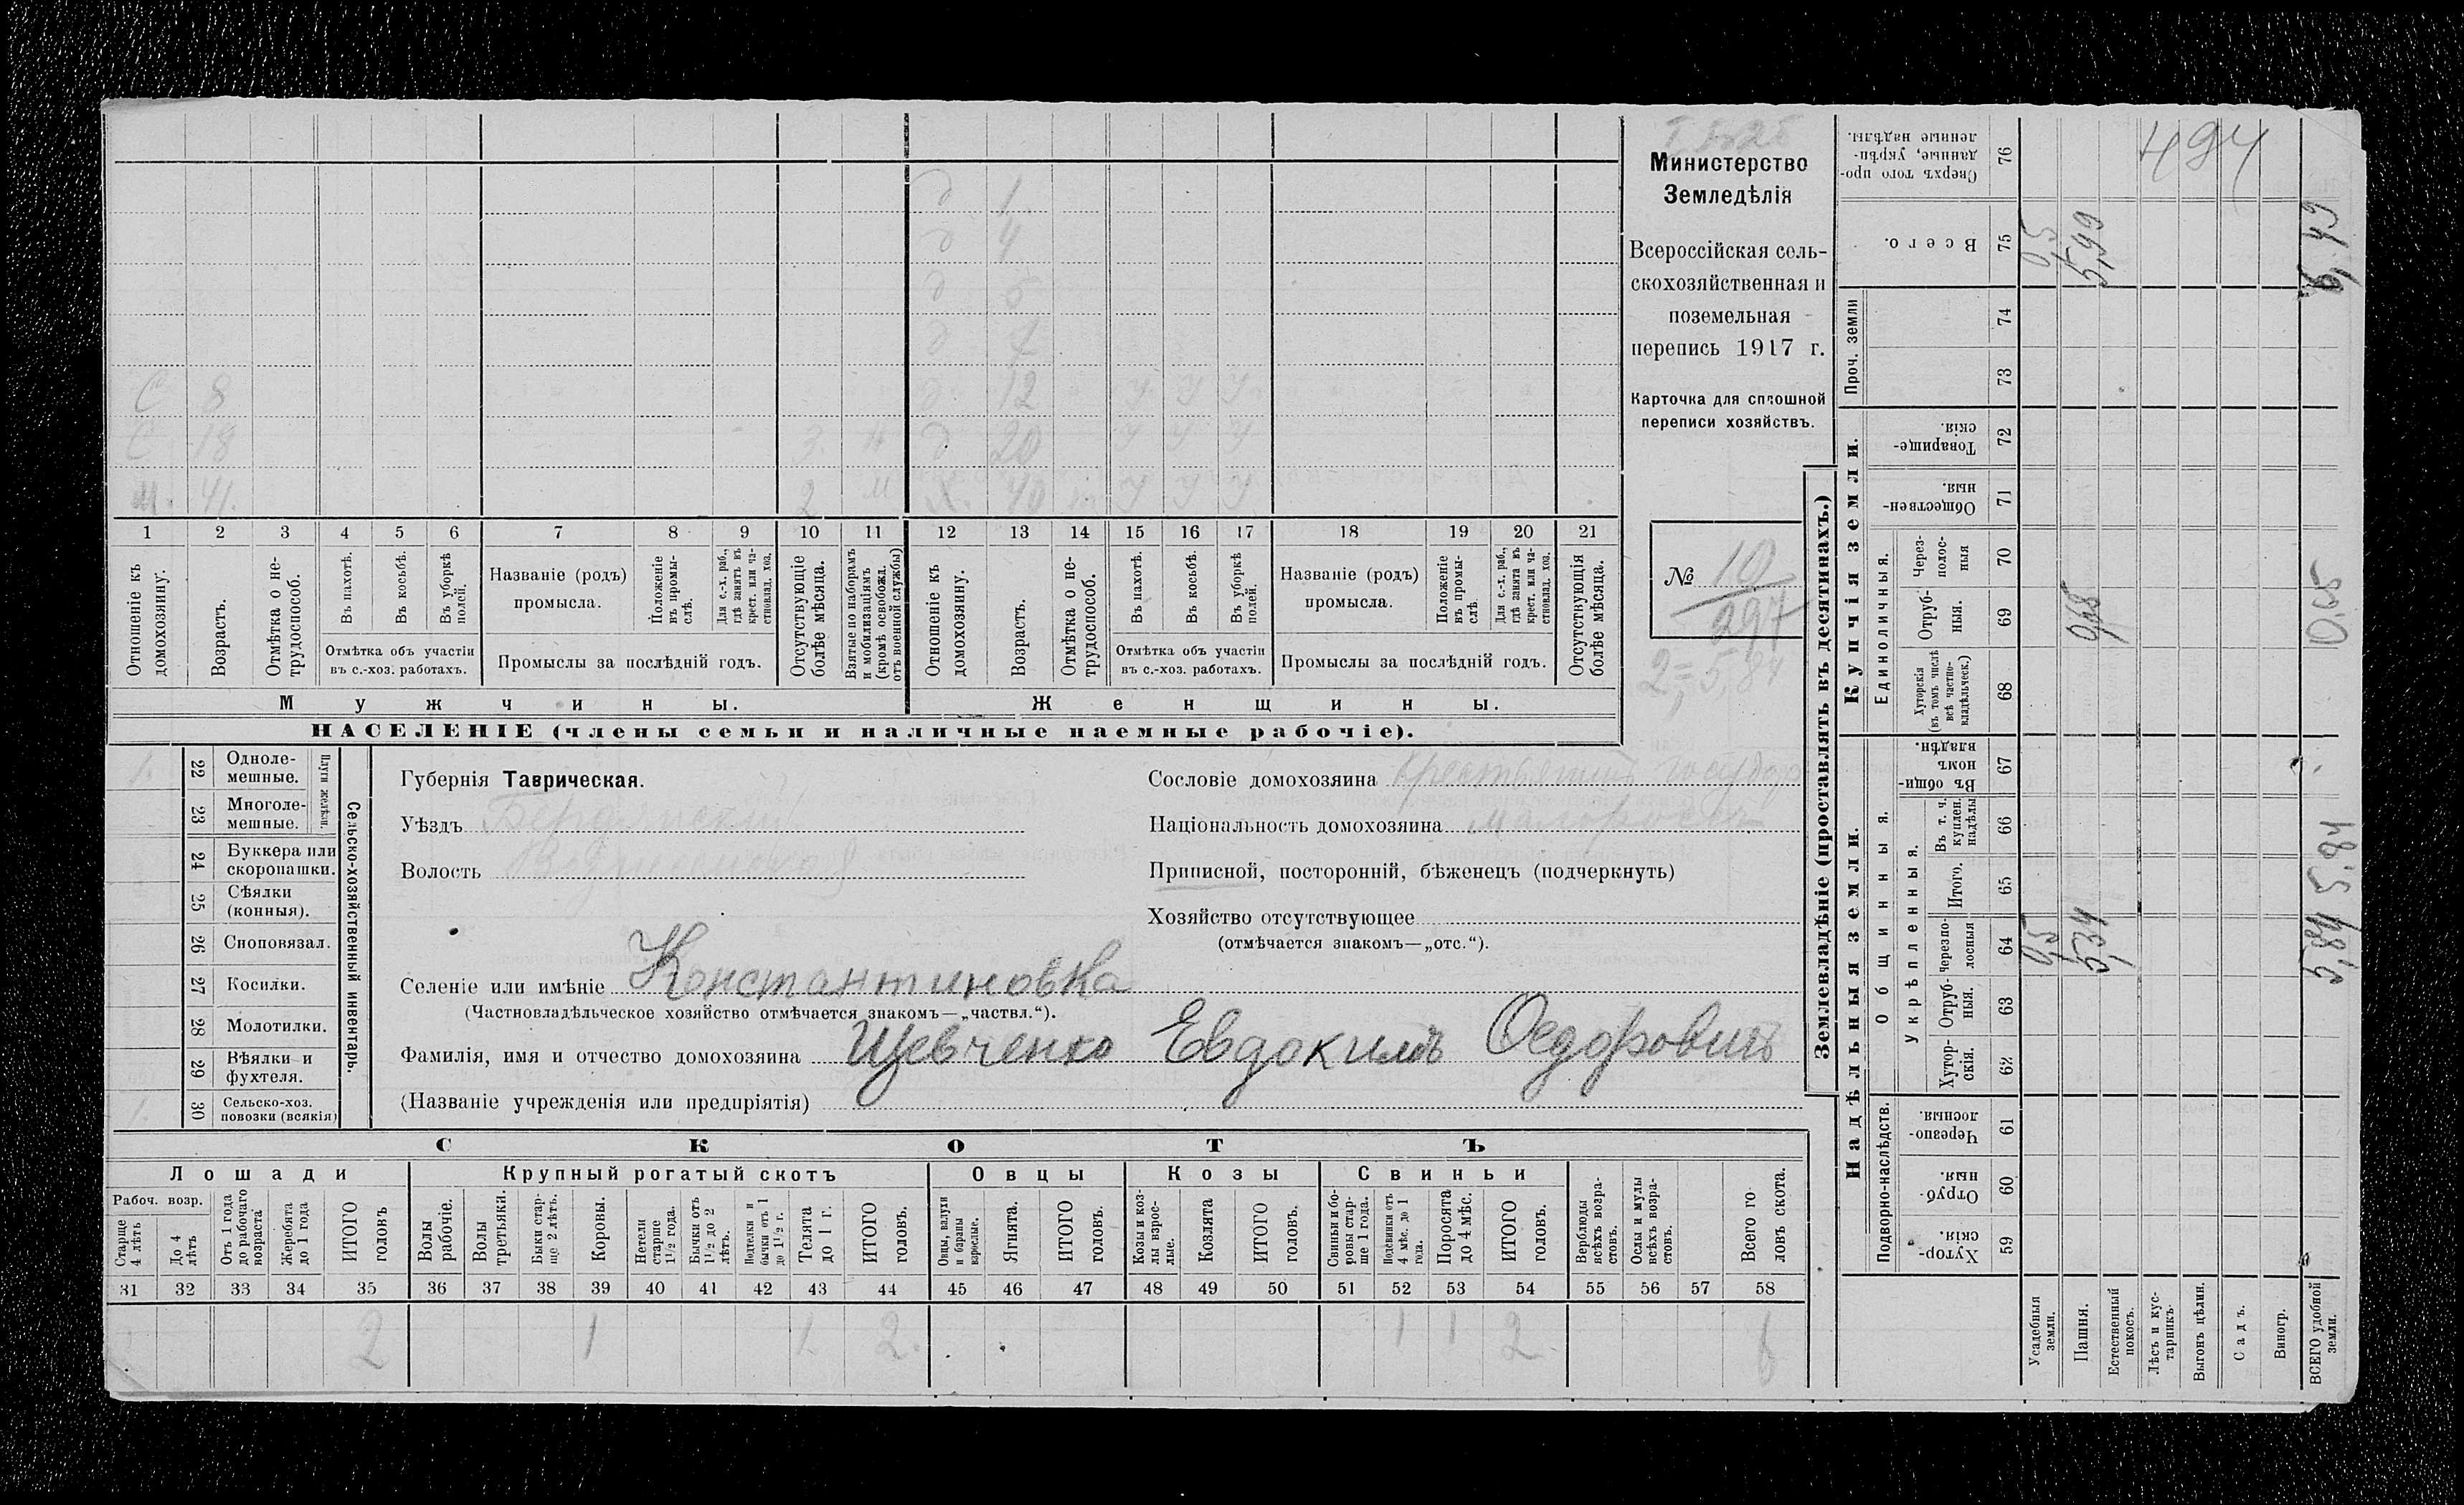 Министерство
Земледѣлія
Всероссійская сель-
скохозяйственная и
поземельная
перепись 1917 г.
Карточка для сплошной
переписи хозяйствъ.
№ 10
297
2 = 5,84
д 1
д 4
д 5
д
С 8 д 12 У У У
С 18 3 н д 20 У У У
41. 2 м Ж. 40 У У У
1 2 3 4 5 6 7 8 9 10 11 12 13 14 15 16 17 18 19 20 21
Отношеніе къ домохозяину.
Возрастъ.
Отмѣтка о не-трудоспособ.
Въ пахотѣ.
Въ косьбѣ.
Въ уборкѣ полей.
Отмѣтка объ участіи въ с.-хоз. работахъ.
Названіе (родъ) промысла.
Положеніе въ промы-слѣ.
Для с.-х. раб., гдѣ занятъ въ крест. или ча-стновлад. хоз.
Промыслы за послѣдній годъ.
Отсутствующіе болѣе мѣсяца.
Взятые по наборамъ и мобилизаціямъ (кромѣ освобожд. отъ военной службы)
Отношеніе къ домохозяину.
Возрастъ.
Отмѣтка о не-трудоспособ.
Въ пахотѣ.
Въ косьбѣ.
Въ уборкѣ полей.
Отмѣтка объ участіи въ с.-хоз. работахъ.
Названіе (родъ) промысла.
Положеніе въ промы-слѣ
Для с.-х. раб., гдѣ занята въ крест. или ча-стновлад. хоз.
Промыслы за послѣдній годъ.
Отсутствующія болѣе мѣсяца.
Мужчины.
Женщины.
НАСЕЛЕНІЕ (члены семьи и наличные наемные рабочіе).
1. 22 Одноле-мешные.
23 Многоле-мешные.
Плуги желѣзн.
24 Буккера или скоропашки.
25 Сѣялки (конныя).
26 Сноповязал.
27 Косилки.
28 Молотилки.
29 Вѣялки и фухтеля.
1. 30 Сельско-хоз. повозки (всякія)
Сельско-хозяйственный инвентарь.
Губернія Таврическая.
Уѣздъ Бердянскій
Волость
Сословіе домохозяина крестьянинъ государ
Національность домохозяина малороссъ
Приписной, посторонній, бѣженецъ (подчеркнуть)
Хозяйство отсутствующее
(отмѣчается знакомъ—„отс.“).
Селеніе или имѣніе Константиновка
(Частновладѣльческое хозяйство отмѣчается знакомъ—„частвл.“).
Фамилія, имя и отчество домохозяина Шевченко Евдокимъ Ѳедоровичъ
(Названіе учрежденія или предпріятія)
СКОТЪ
Лошади Крупный рогатый скотъ Овцы Козы Свиньи
Рабоч. возр.
Старше 4 лѣтъ
До 4 лѣтъ
Отъ 1 года до рабочаго возраста
Жеребята до 1 года
ИТОГО головъ
Волы рабочіе.
Волы третьяки.
Быки стар-ше 2 лѣтъ.
Коровы.
Нетели старше 1½ года.
Бычки отъ 1½ до 2 лѣтъ.
Подтелки и бычки отъ 1 до 1½ г.
Телята до 1 г.
ИТОГО головъ.
Овцы, валухи и бараны взрослые.
Ягнята.
ИТОГО головъ.
Козы и коз-лы взрос-лые.
Козлята
ИТОГО головъ.
Свиньи и бо-ровы стар-ше 1 года.
Подсвинки отъ 4 мѣс. до 1 года.
Поросята до 4 мѣс.
ИТОГО головъ.
Верблюды всѣхъ возра-стовъ.
Ослы и мулы всѣхъ возра-стовъ.
Всего го-ловъ скота.
31 32 33 34 35 36 37 38 39 40 41 42 43 44 45 46 47 48 49 50 51 52 53 54 55 56 57 58
2 1 1 2. 1 1 2. 6
Землевладѣніе (проставлять въ десятинахъ.)
Надѣльныя земли.
Купчія земли.
Проч. земли
Подворно-наслѣдств.
Общинныя.
Укрѣпленныя.
Единоличныя.
Хутор-скія. 59
Отруб-ныя. 60
Черезпо-лосныя. 61
Хутор-скія. 62
Отруб-ныя. 63
Черезпо-лосныя 64
Итого. 65
Въ т. ч. куплен. надѣлы 66
Въ общин-номъ владѣн. 67
Хуторскія (въ томъ числѣ всѣ частно-владѣльческ.) 68
Отруб-ныя. 69
Через-полос-ныя 70
Обществен-ныя. 71
Товарище-скія. 72
73
74
Всего. 75
Сверхъ того про-данные, укрѣп-ленные надѣлы. 76
Усадебныя земли. 0,5 0,5
Пашня. 5,34 5,99
Естественный покосъ.
Лѣсъ и кус-тарникъ.
Выгонъ цѣлин.
Садъ.
Виногр.
ВСЕГО удобной земли. 5,84 5,84 0,65 6,49
494